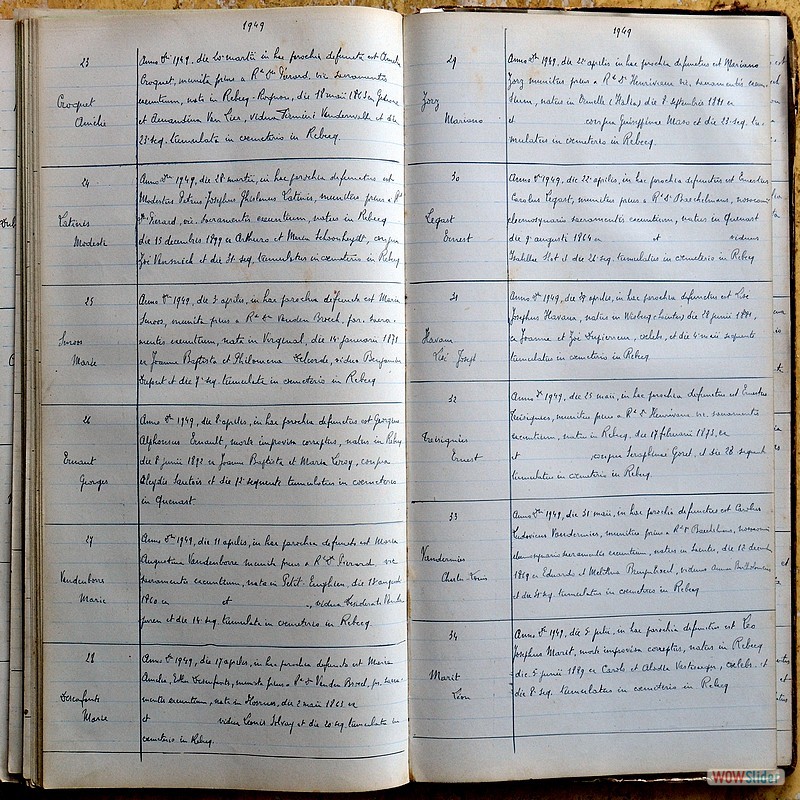 1949
23
Croquet
Amélie
Anno Dni 1949, die 20 martii in hac parochia defuncta est Amelia
Croquet, munita prius a Rdo Dno Pierard, vic. sacramentis
exeuntium, nata in Rebecq-Rognon, die 18 maii 1863 ex
et Amandina Van Lier, vidua Vandenwalle et die
23 seq. tumulata in cemeterio in Rebecq.
24
Latinis
Modeste
Anno Dni 1949, die 28 martii, in hac parochia defunctus est
Modestus Petrus Josephus Ghislenus Latinis, munitus prius a Rdo
Dno Pierard, vic. sacramentis exeuntium, natus in Rebecq
die 13 decembris 1899 ex Arthuro et Maria Schoonheydt, conjux
Zoé et die 31 seq. tumulatus in cemeterio in Rebecq
25
Smoos
Marie
Anno Dni 1949, die 3 aprilis, in hac parochia defuncta est Maria
Smoos, munita prius a Rdo Dno Vanden Broeck, par. sacra-
mentis exeuntium, nata in Virginal, die 14 januarii 1871
ex Joanne Baptista et Philomena Delcorde, vidua Benjamin
Dupont et die 7a seq. tumulata in cemeterio in Rebecq
26
Ernaut
Georges
Anno Dni 1949, die 8 aprilis, in hac parochia defunctus est Georgius
Alphonsus Ernault, morte improvisa correptus, natus in Rebecq
die 8 junii 1892 ex Joanne Baptista et Maria Leroy, conjux
Aleydis et die 12 sequente tumulatus in coemeterio
in Quenast.
27
Vandenborre
Marie
Anno Dni 1949, die 11 aprilis, in hac parochia defuncta est Maria
Augustina Vandenborre munita prius a Rdo Dno Pierard vic
sacramentis exeuntium, nata in Petit-Enghien, die 18 augusti
1860 ex et , vidua
et die 14 seq. tumulata in cemeterio in Rebecq.
28
Desenfants
Marie
Anno Dni 1949, die 17 aprilis, in hac parochia defuncta est Maria
Amelia, Desenfants, munita prius a Rdo Dno Vanden Broeck, par. sacra-
mentis exeuntium, nata in Horrues, die 2 maii 1863 ex
et vidua Louis Solvay et die 20 seq. tumulata in
cemeterio in Rebecq.
1949
29
Zorz
Mariano
Anno Dni 1949, die 22 aprilis in hac parochia defunctus est Mariano
Zorz munitus prius a Rdo Dno Henrivaux vic. sacramentis exeun-
tium, natus in (Italia) die 8 septembris 1891 ex
et conjux Maso et die 23 seq. tu-
mulatus in cemeterio in Rebecq.
30
Legast
Ernest
Anno Dni 1949, die 22 aprilis, in hac parochia defunctus est Ernestus
Carolus Legast, munitus prius a Rdo Dno Baechelmans,
eleemosynario sacramentis exeuntium, natus in Quenast
die 9 augusti 1864 ex et viduus
et die 25 seq. tumulatus in cemeterio in Rebecq
31
Havaux
Léé Joseph
Anno Dni 1949, die 29 aprilis, in hac parochia defunctus est
Josephus Havaux, natus in Wisbecq (Saintes) die 28 junii 1881,
ex Joanne et Zoé, celebs, et die 4 maii sequente
tumulatus in cemeterio in Rebecq
32
Tresignies
Ernest
Anno Dni 1949, die 25 maii, in hac parochia defunctus est Ernestus
Tresignies, munitus prius a Rdo Dno Henrivaux vic. sacramentis
exeuntium, natus in Rebecq, die 17 februarii 1873, ex
et conjux Seraphinae, et die 28 sequente
tumulatus in cemeterio in Rebecq.
33
Vandermies
Charles-Louis
Anno Dni 1949, die 31 maii, in hac parochia defunctus est Carolus
Ludovicus Vandermies, munitus prius a Rdo Dno
sacramentis exeuntium, natus in Saintes, die 12
1869 ex Eduardo et, viduus
et die seq. tumulatus in cemeterio in Rebecq
34
Marit
Léon
Anno Dni 1949, die 5 julii, in hac parochia defunctus est Leo
Josephus Maret, morte improvisa correptus, natus in Rebecq
die 5 junii 1889 ex Carolo et, celebs et
die 8 seq. tumulatus in cemeterio in Rebecq
WOWSlider